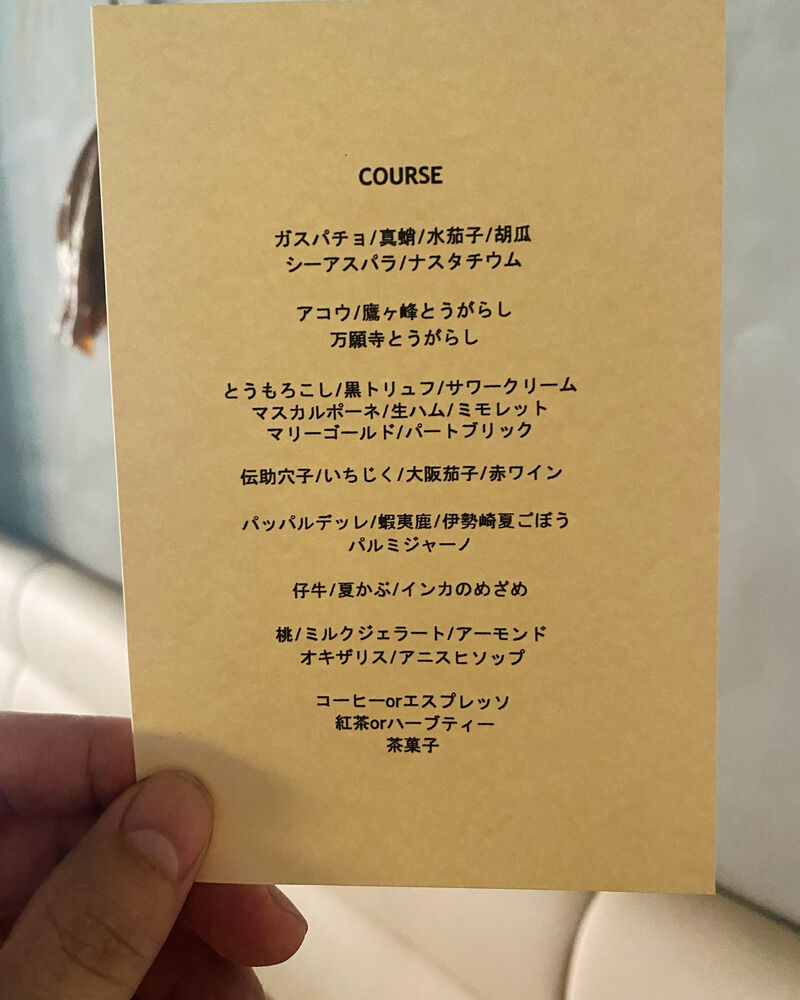 COURSE
ガスパチョ/真蛸/水茄子/胡瓜
シーアスパラ/ナスタチウム
アコウ/鷹ヶ峰とうがらし
万願寺とうがらし
とうもろこし/黒トリュフ/サワークリーム
マスカルポーネ/生ハム/ミモレット
マリーゴールド/パートブリック
伝助穴子/いちじく/大阪茄子/赤ワイン
パッパルデッレ/蝦夷鹿/伊勢崎夏ごぼう
パルミジャーノ
仔牛/夏かぶ/インカのめざめ
桃/ミルクジェラート/アーモンド
オキザリス/アニスヒソップ
コーヒーorエスプレッソ
紅茶orハーブティー
茶菓子